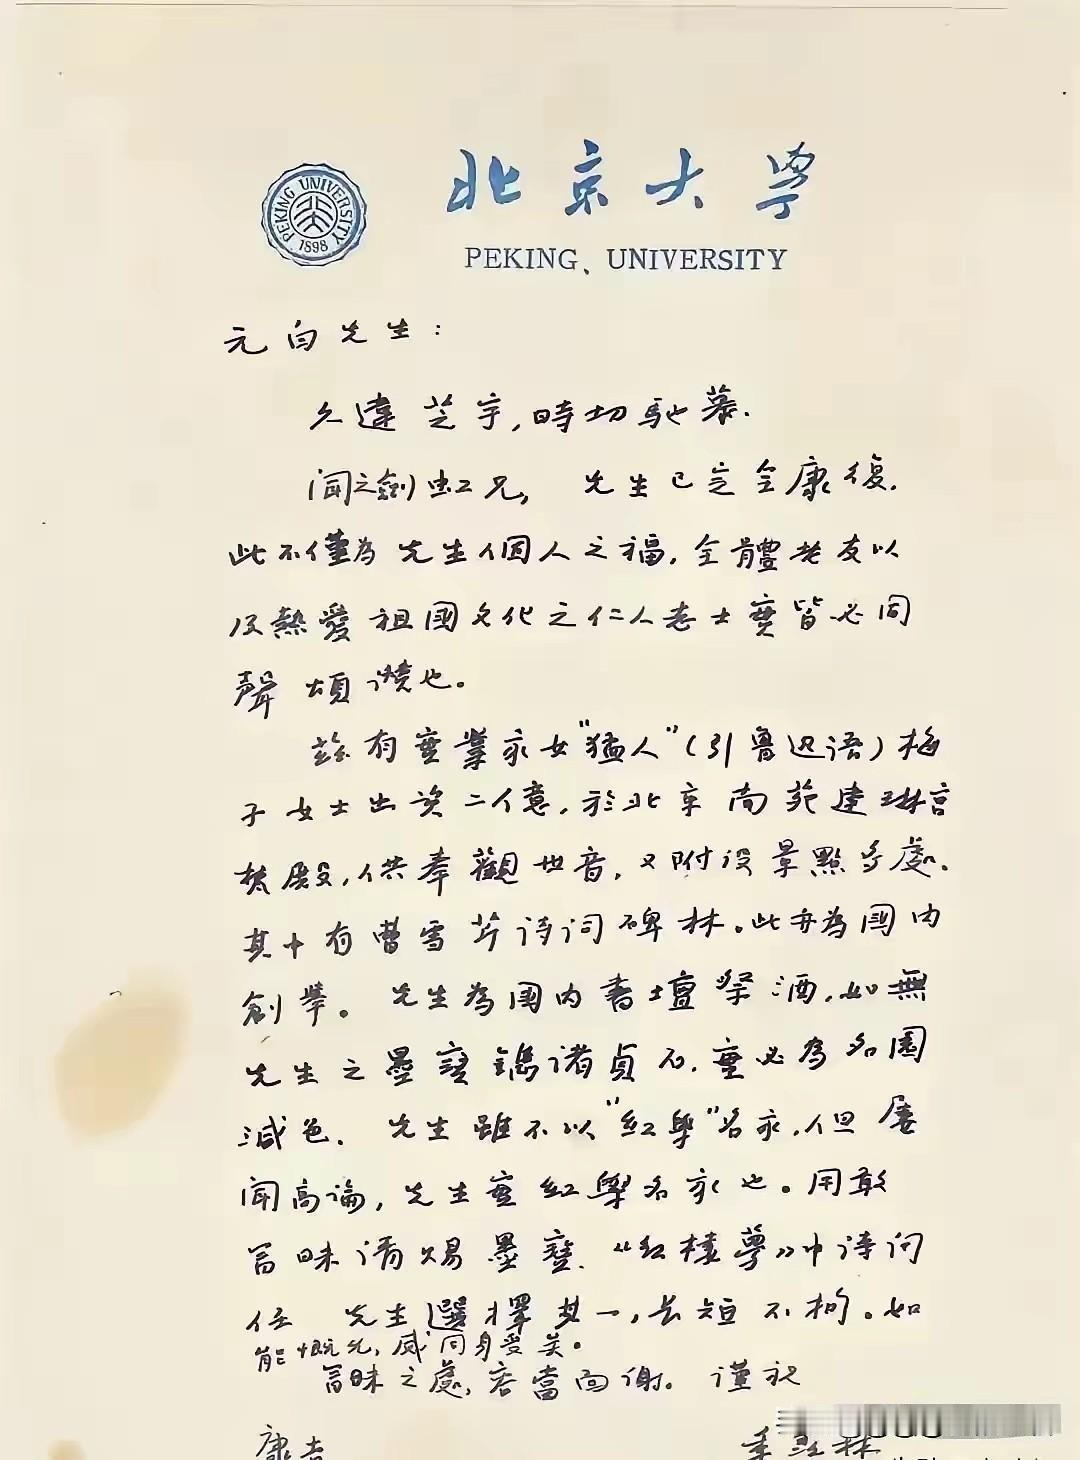 北京大学
PEKING UNIVERSITY 1898
PEKING、UNIVERSITY
元白先生：
久違芝宇，時切馳慕.
闻之劍虹兄， 先生已完全康復.
此不僅為 先生個人之福，全體老友以
及熱愛祖國文化之仁人志士實皆必同
聲頌禱也。
兹有實業家女“猛人”（引魯迅语）梅
子女士出资二億，於北京南苑建琳宫
梵殿，供奉觀世音，又附设景點多處.
其中有曹雪芹诗词碑林。此亦為國内
創舉。 先生為国内書壇祭酒，如無
先生之墨寶鐫诸貞石，實必為名園
減色. 先生雖不以“紅學”名家，但屡
闻高論，先生實紅學名家也。用敢
冒昧请赐墨寶.《红楼夢》中诗词
任 先生選擇其一，长短不拘。如
能慨允，感同身受矣。
冒昧之處，容當面谢。 谨祝
康吉
季羡林